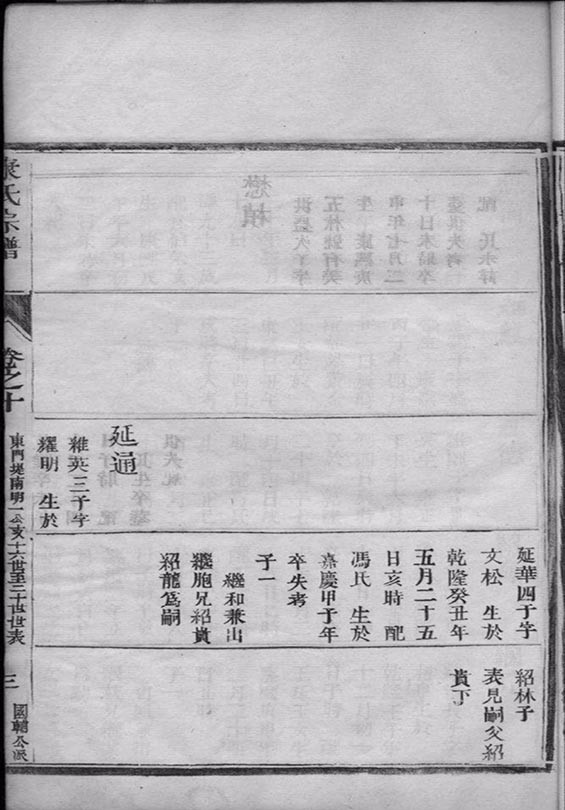 延華四子字
文松 生於
乾隆癸丑年
五月二十五
日亥時 配
馮氏 生於
嘉慶甲子年
卒失考
子一
繼和兼出
繼胞兄紹貴
紹龍爲嗣
紹林子
表見嗣父紹
貴下
延通
維英三子字
耀明 生於
康氏宗譜
卷之十
東門堤南明一公亥十六世至三十世世表
三
國輔公派